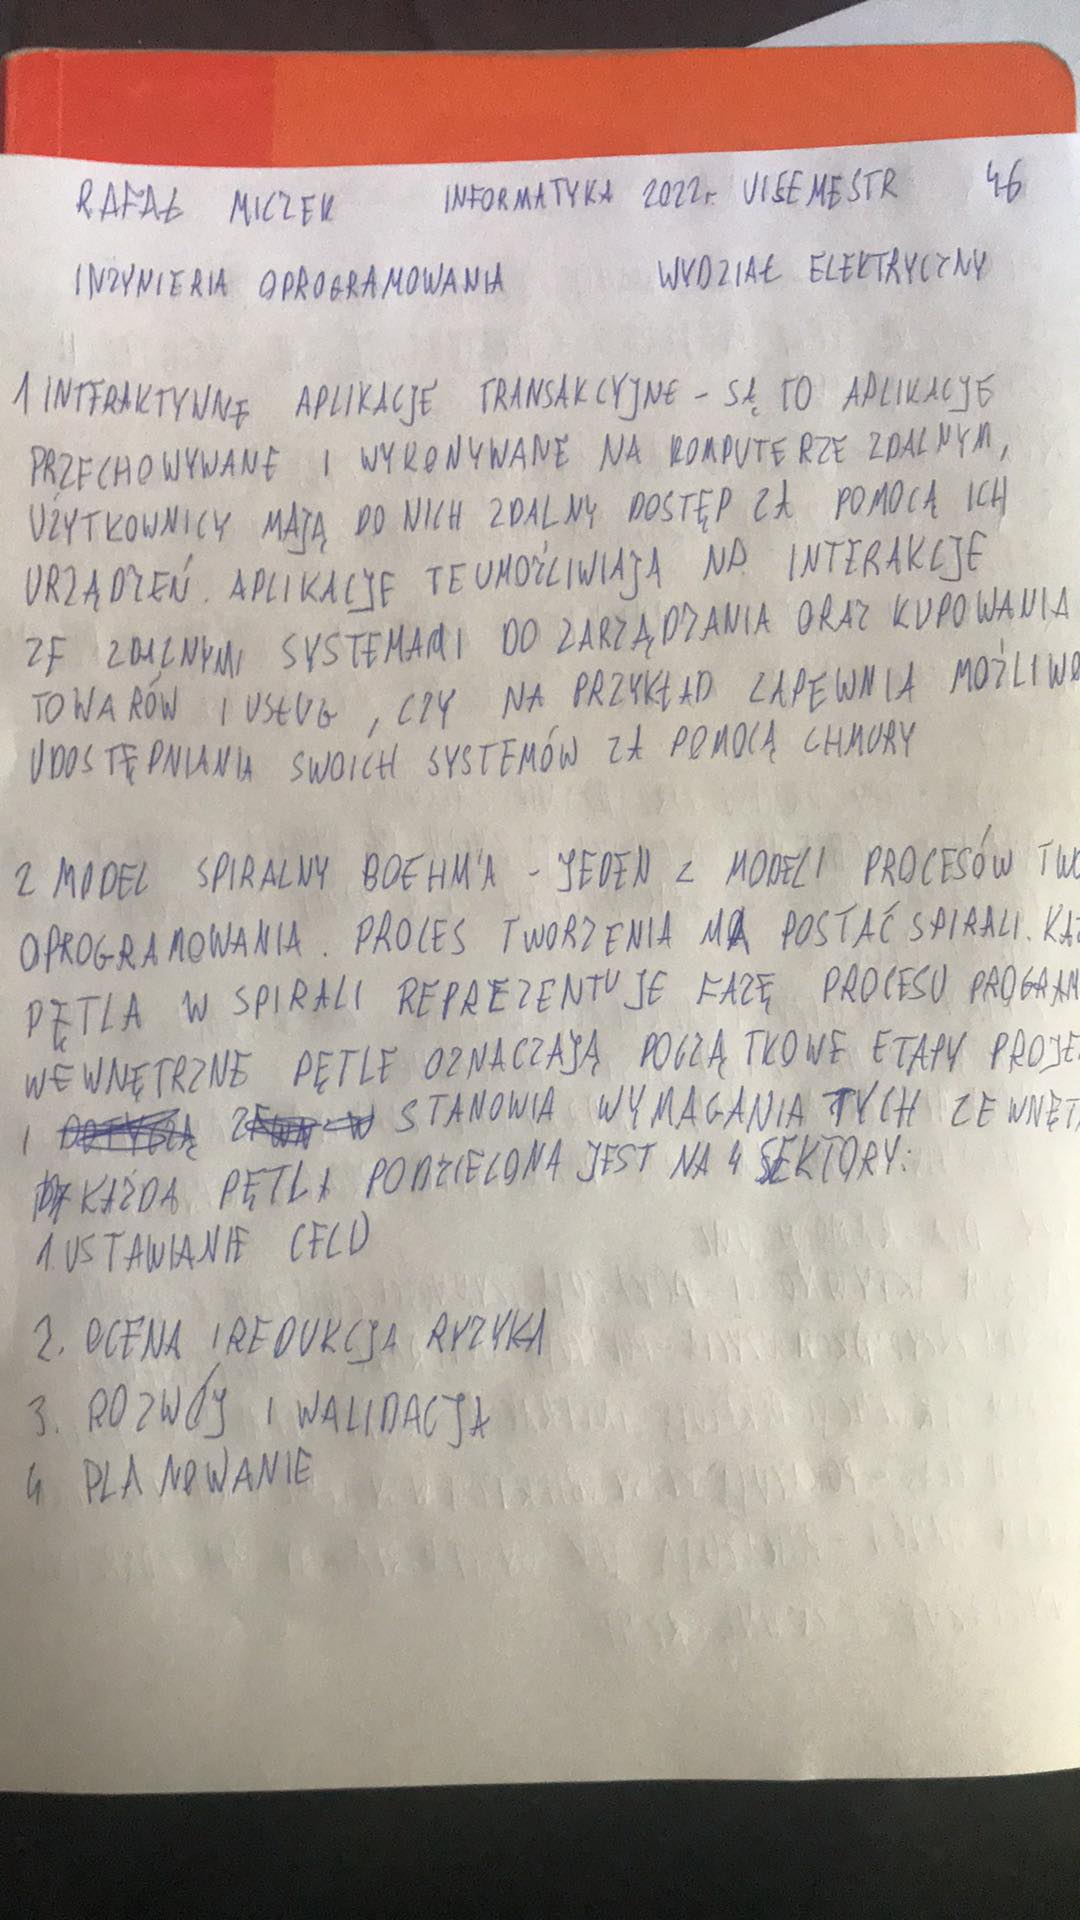 RAFAŁ MICZEK INFORMATYKA 2022r. VI SEMESTR 46
INŻYNIERIA OPROGRAMOWANIA WYDZIAŁ ELEKTRYCZNY
1 INTERAKTYWNE APLIKACJE TRANSAKCYJNE - SĄ TO APLIKACJE
PRZECHOWYWANE I WYKONYWANE NA KOMPUTERZE ZDALNYM,
UŻYTKOWNICY MAJĄ DO NICH ZDALNY DOSTĘP ZA POMOCĄ ICH
URZĄDZEŃ. APLIKACJE TE UMOŻLIWIAJĄ NP. INTERAKCJE
ZE ZDALNYMI SYSTEMAMI DO ZARZĄDZANIA ORAZ KUPOWANIA
TOWARÓW I USŁUG, CZY NA PRZYKŁAD ZAPEWNIA MOŻLIWO
UDOSTĘPNIANIA SWOICH SYSTEMÓW ZA POMOCĄ CHMURY
2 MODEL SPIRALNY BOEHM'A - JEDEN Z MODELI PROCESÓW TWO
OPROGRAMOWANIA. PROCES TWORZENIA MA POSTAĆ SPIRALI. KAŻ
PĘTLA W SPIRALI REPREZENTUJE FAZĘ PROCESU PROGRAM
WEWNĘTRZNE PĘTLE OZNACZAJĄ POCZĄTKOWE ETAPY PROJE
I STANOWIA WYMAGANIA TYCH ZEWNĘT
KAŻDA PĘTLA PODZIELONA JEST NA 4 SEKTORY:
1. USTAWIANIE CELU
2. OCENA I REDUKCJA RYZYKA
3. ROZWÓJ I WALIDACJA
4 PLANOWANIE